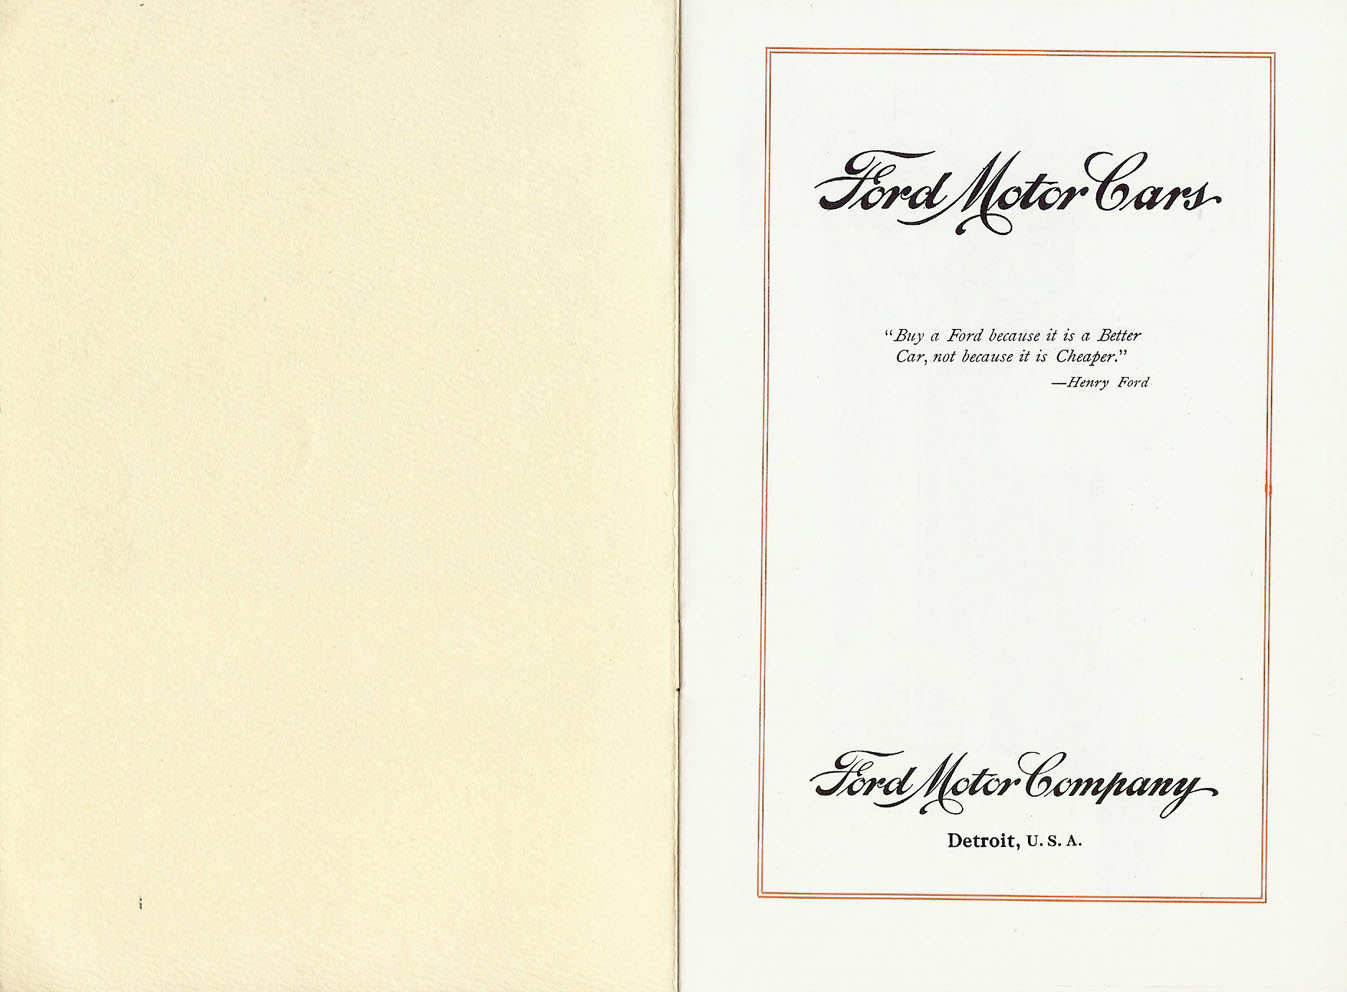 Ford Motor Cars
"Buy a Ford because it is a Better
Car, not because it is Cheaper."
—Henry Ford
Ford Motor Company
Detroit, U. S. A.